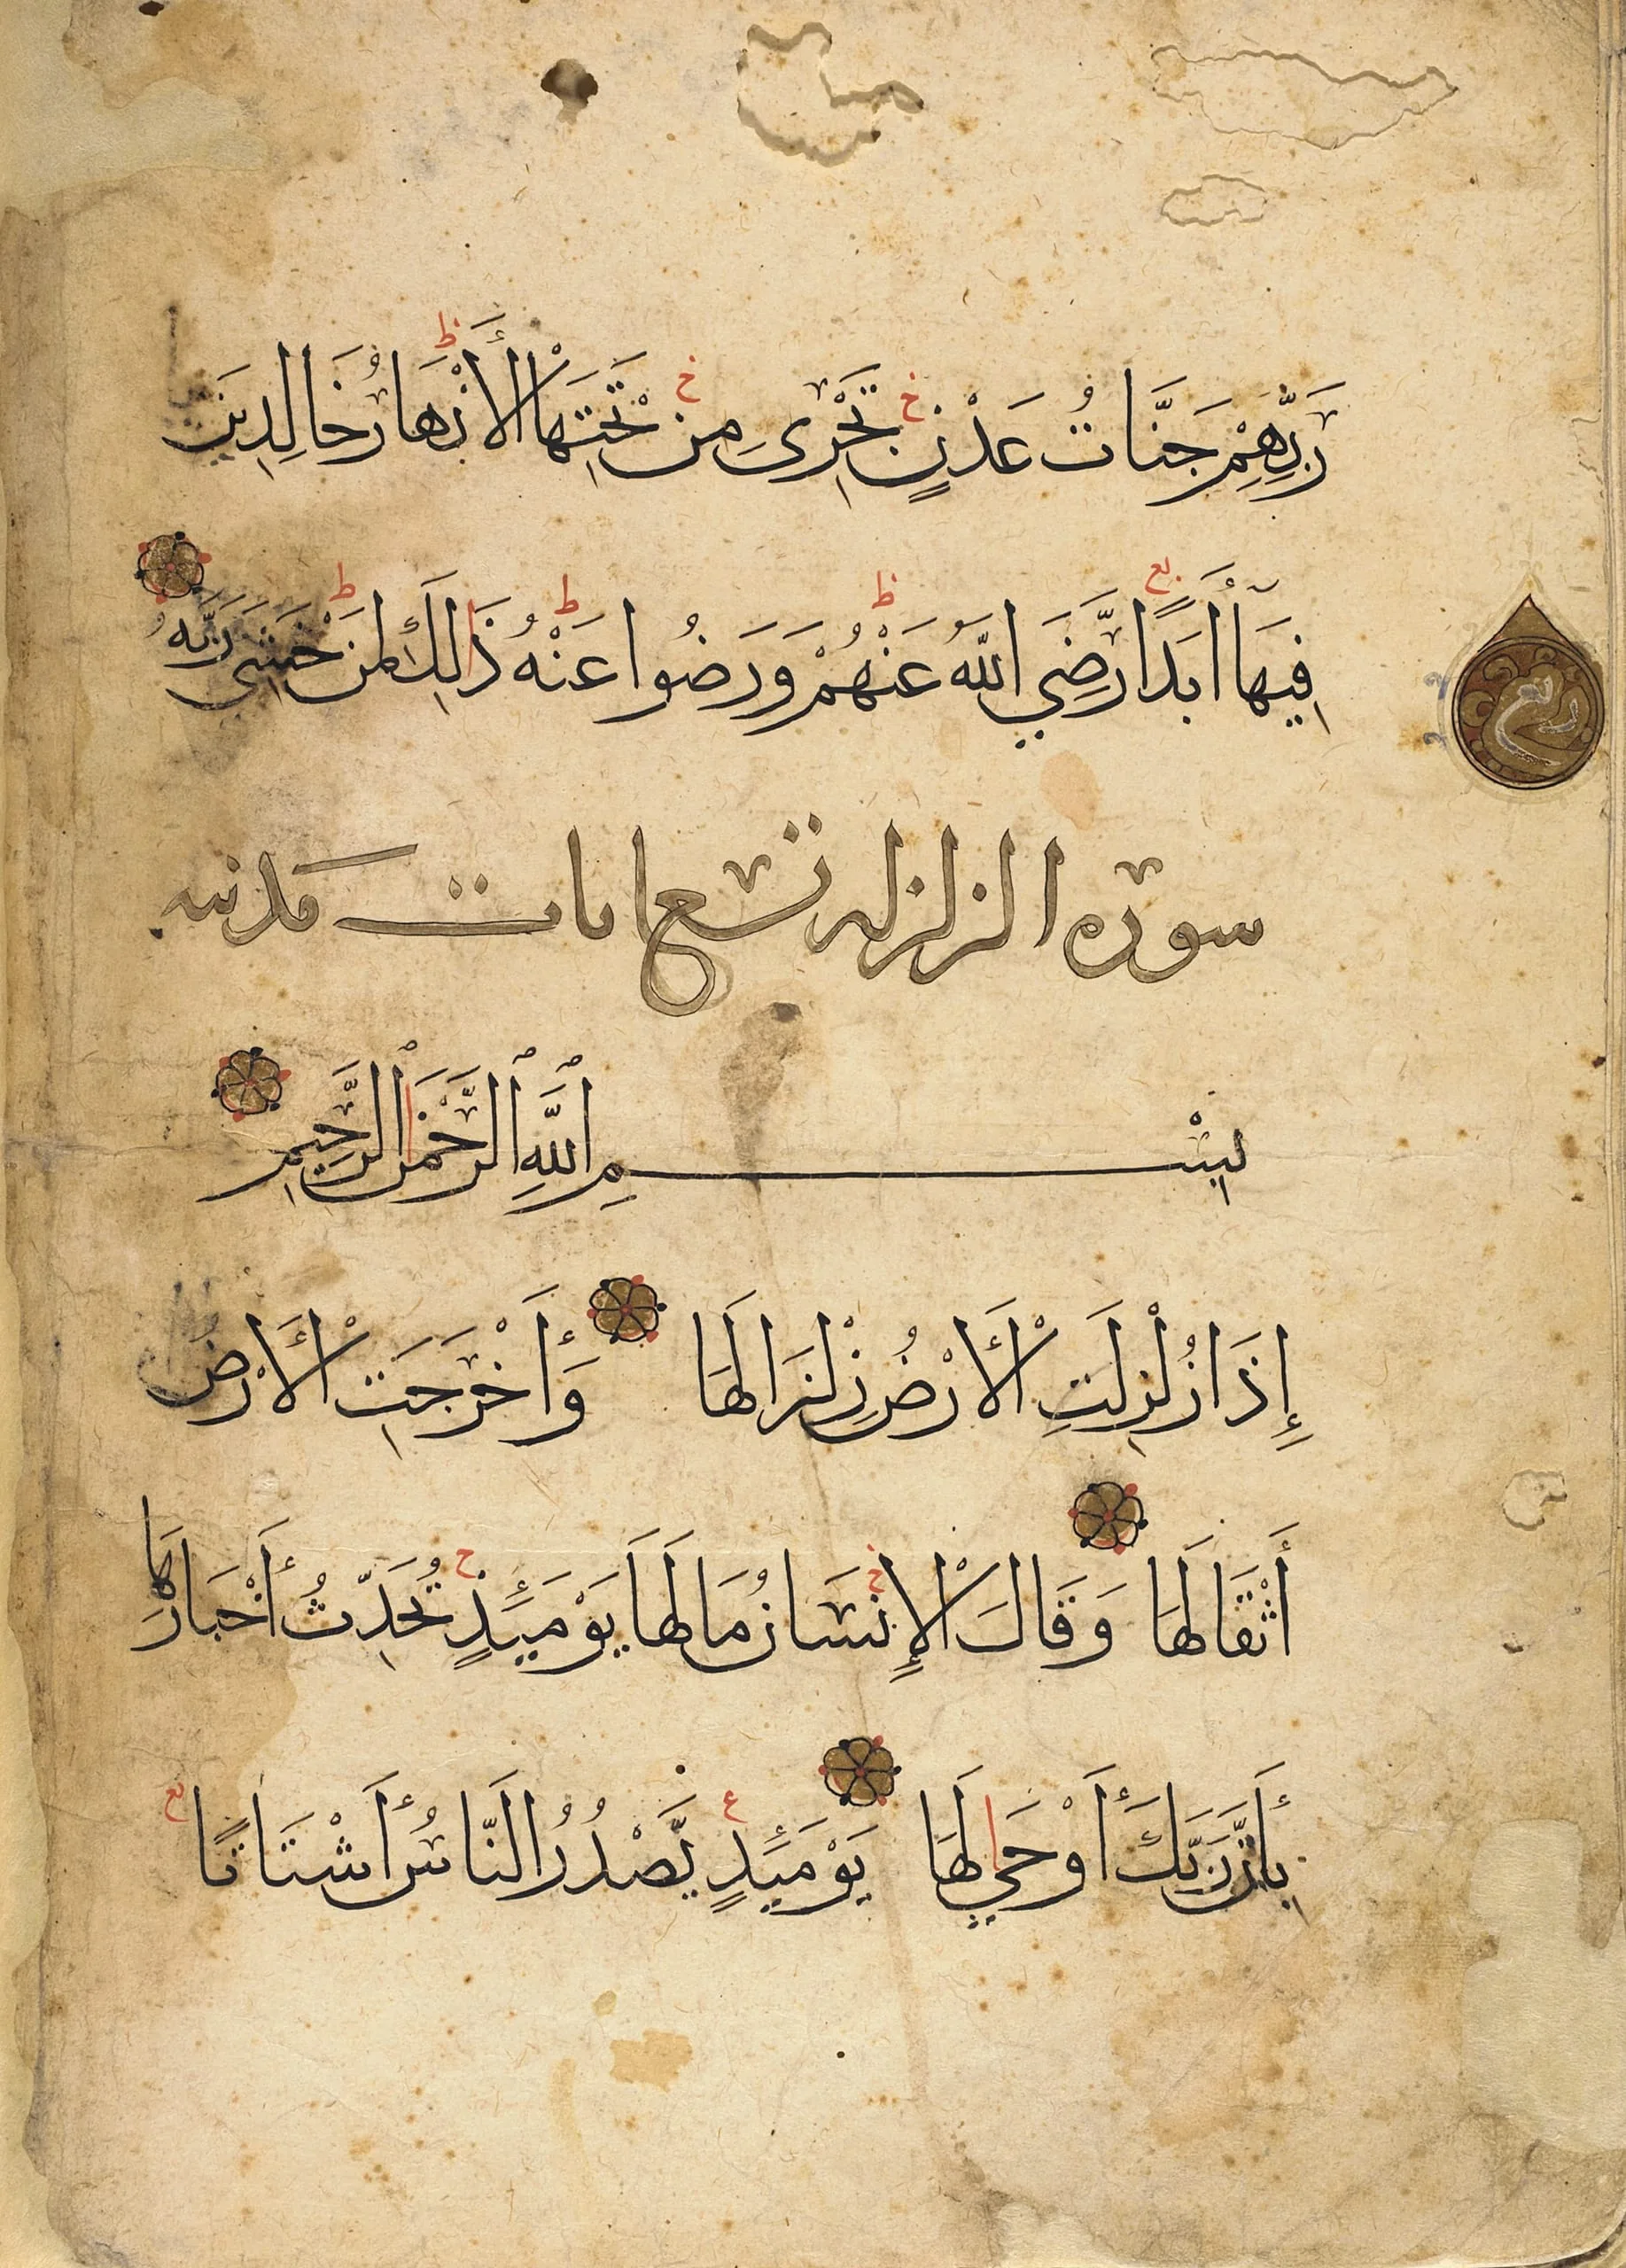 رَبِّهِمْ جَنَّاتُ عَدْنٍ تَجْرِي مِن تَحْتِهَا الْأَنْهَارُ خَالِدِينَ
فِيهَا أَبَدًا رَّضِيَ اللَّهُ عَنْهُمْ وَرَضُوا عَنْهُ ذَالِكَ لِمَنْ خَشِيَ رَبَّهُ
سورة الزلزلة تسع ايات مدنية
بِسْمِ اللَّهِ الرَّحْمَنِ الرَّحِيمِ
إِذَا زُلْزِلَتِ الْأَرْضُ زِلْزَالَهَا وَأَخْرَجَتِ الْأَرْضُ
أَثْقَالَهَا وَقَالَ الْإِنسَانُ مَا لَهَا يَوْمَئِذٍ تُحَدِّثُ أَخْبَارَهَا
بِأَنَّ رَبَّكَ أَوْحَى لَهَا يَوْمَئِذٍ يَصْدُرُ النَّاسُ أَشْتَاتًا